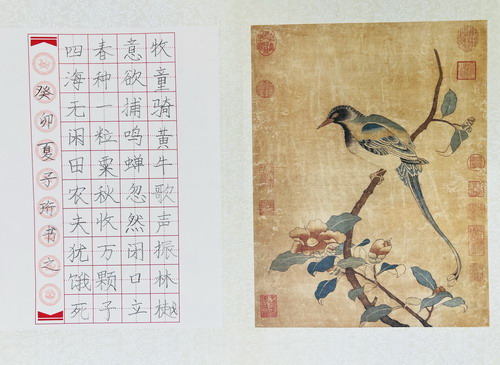 牧童骑黄牛歌声振林樾
意欲捕鸣蝉忽然闭口立
春种一粒粟秋收万颗子
四海无闲田农夫犹饿死
癸卯夏子所书之